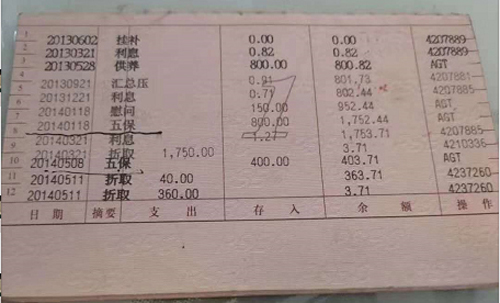 1 20130602 挂补 0.00 0.00 4207889
2 20130321 利息 0.82 0.82 4207889
3 20130528 供养 800.00 800.82 AGT
4 20130921 汇总压 0.91 801.73 4207881
5 20131221 利息 0.71 802.44 4207885
6 20140118 慰问 150.00 952.44 AGT
7 20140118 五保 800.00 1,752.44 AGT
8 20140321 利息 1.27 1,753.71 4207885
9 20140321 折取 1,750.00 3.71 4210336
10 20140508 五保 400.00 403.71 AGT
11 20140511 折取 40.00 363.71 4237260
12 20140511 折取 360.00 3.71 4237260
日期 摘要 支出 存入 余额 操作